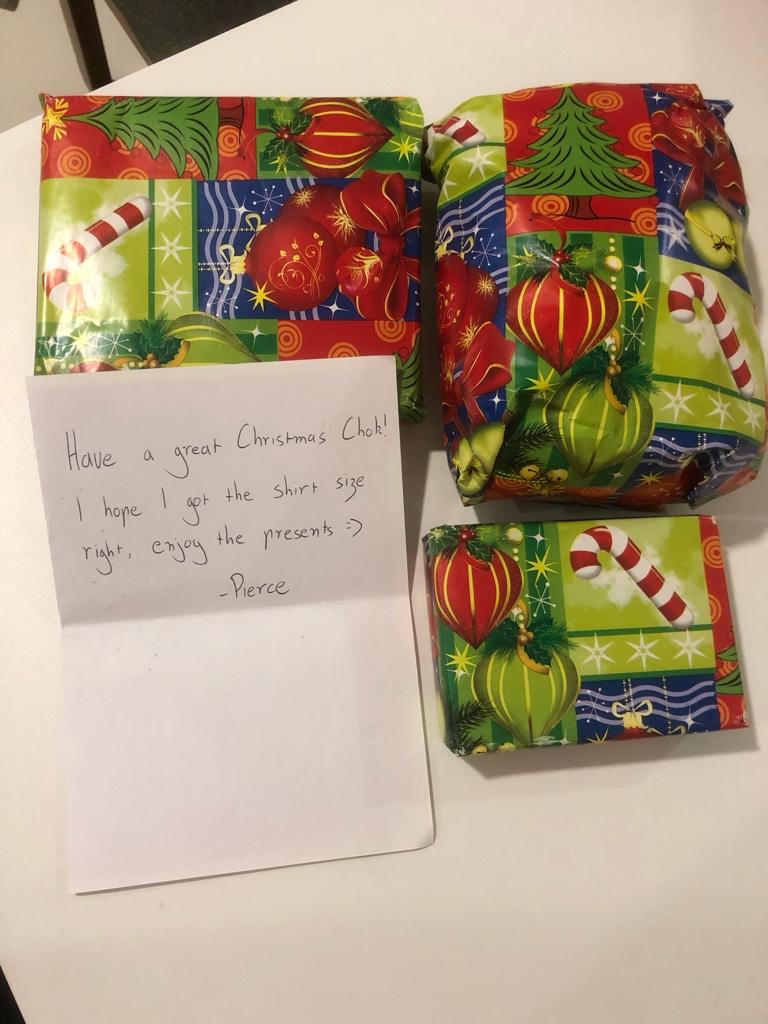 Have a great Christmas Chok!
I hope I got the shirt size
right, enjoy the presents :)
-Pierce